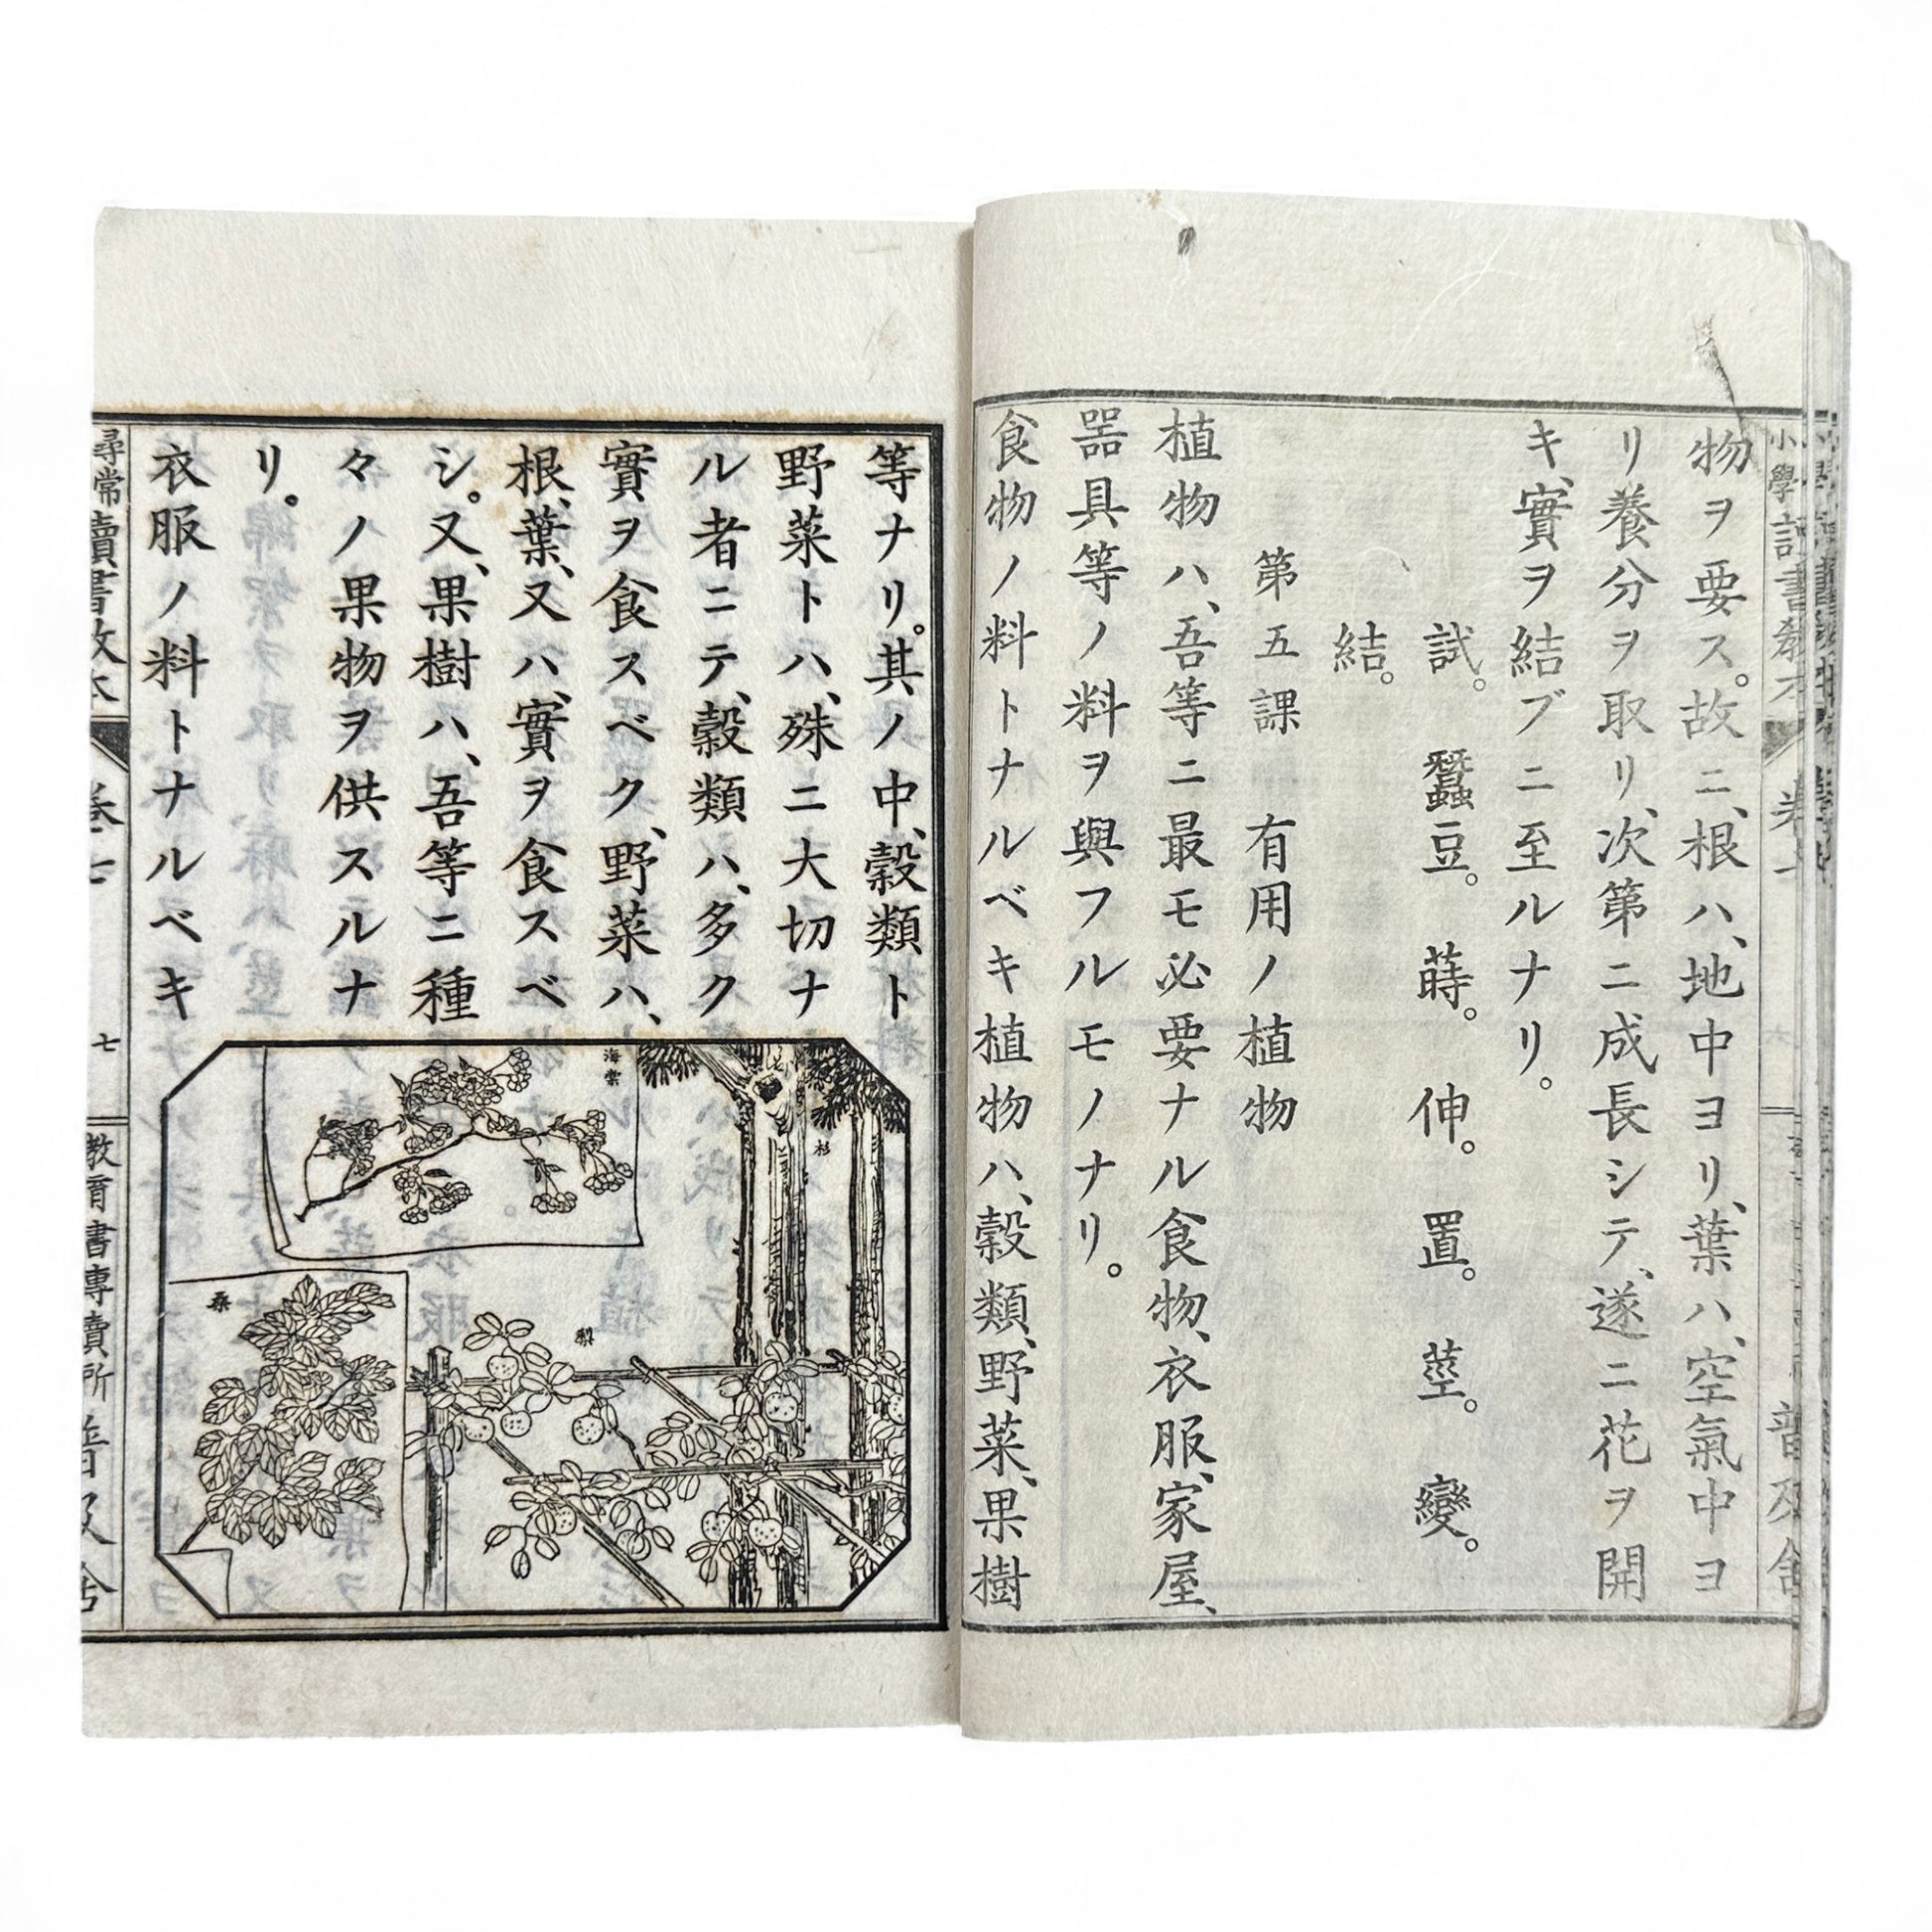 物ヲ要ス。故ニ、根ハ、地中ヨリ、葉ハ、空氣中ヨ
リ養分ヲ取リ、次第ニ成長シテ、遂ニ花ヲ開
キ、實ヲ結ブニ至ルナリ。
試。蠶豆。蒔。伸。置。莖。變。
結。
第五課 有用ノ植物
植物ハ、吾等ニ最モ必要ナル食物、衣服、家屋、
器具等ノ料ヲ與フルモノナリ。
食物ノ料トナルベキ植物ハ、穀類、野菜、果樹
等ナリ。其ノ中、穀類ト
野菜トハ、殊ニ大切ナ
ル者ニテ、穀類ハ、多ク
實ヲ食スベク、野菜ハ、
根、葉、又ハ、實ヲ食スベ
シ。又、果樹ハ、吾等ニ種
々ノ果物ヲ供スルナ
リ。
衣服ノ料トナルベキ
海棠
杉
梨
桑
尋常讀書敎本
卷七
七
敎育書專賣所
普及舍